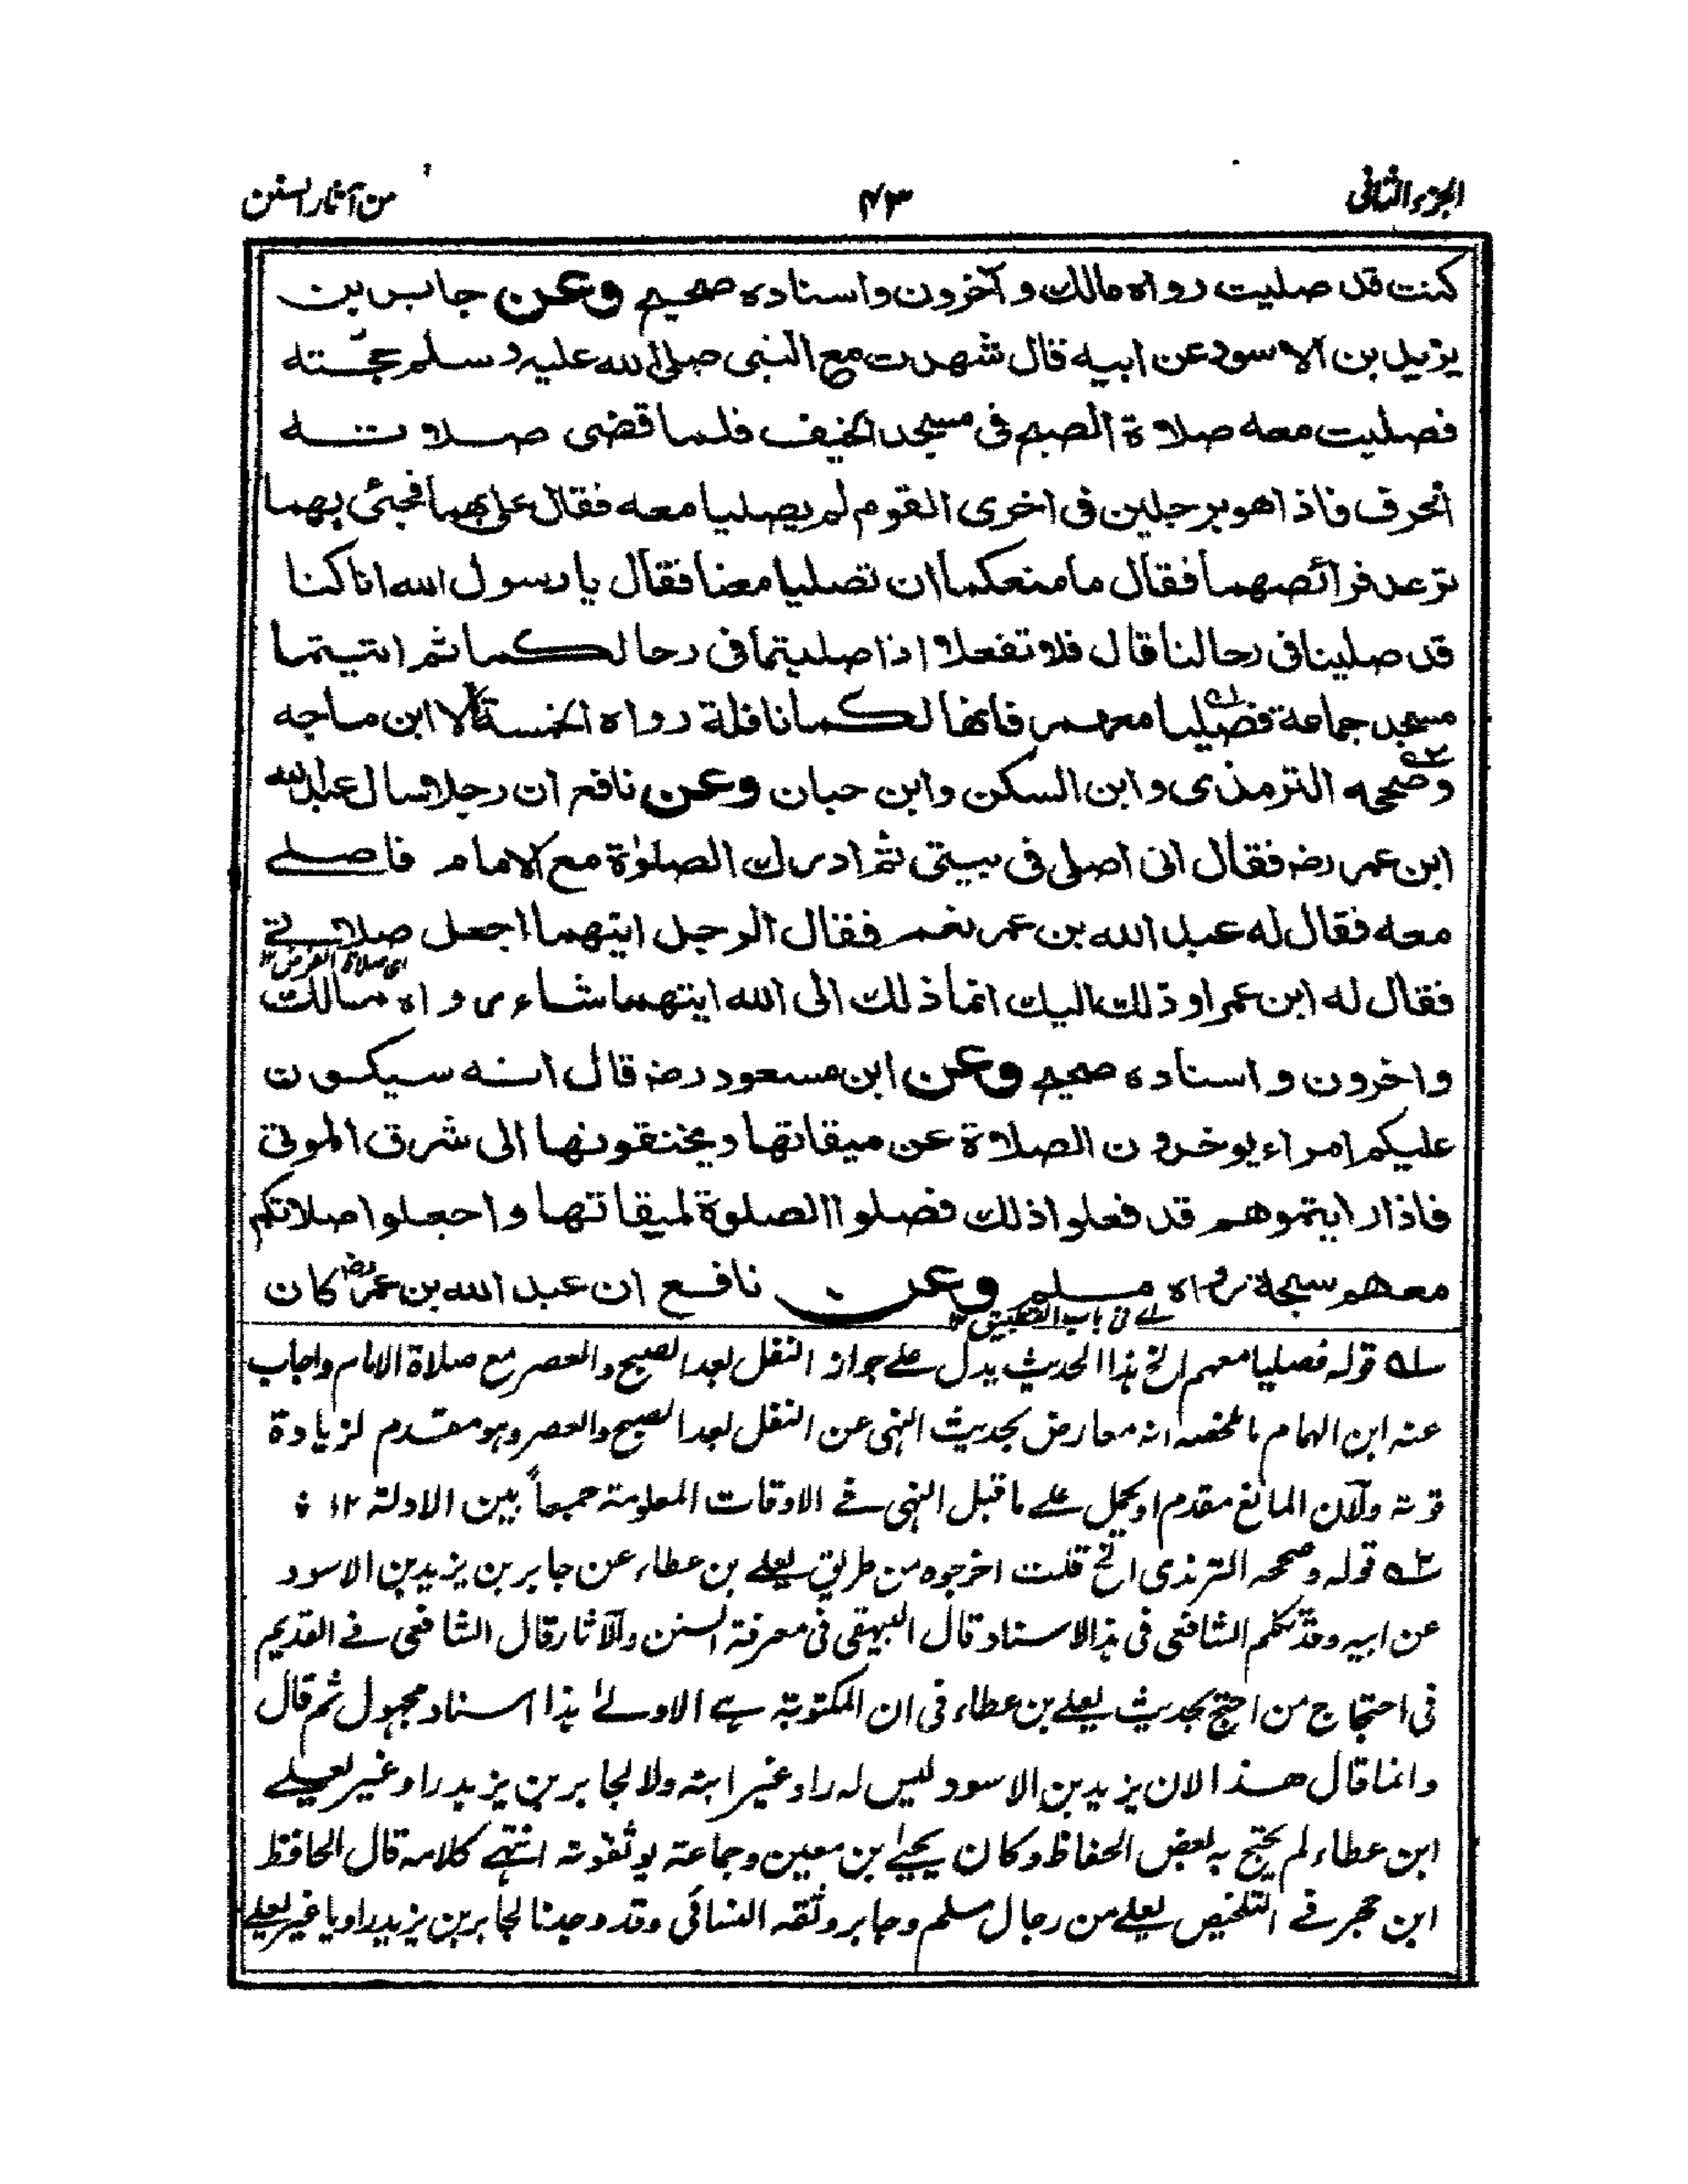 الجزء الثانی
۴۳
من آثار السنن
كنت قد صليت رواه مالك و آخرون واسناده صحيح وعن جابر بن
يزيد بن الاسود عن ابيه قال شهدت مع النبی صلی الله عليه وسلم حجته
فصليت معه صلاة الصبح فی مسجد الخيف فلما قضی صلاته
انحرف فاذا هو برجلين فی اخری القوم لم يصليا معه فقال علی بهما فجئی بهما
ترعد فرائصهما فقال ما منعكما ان تصليا معنا فقال يا رسول الله انا كنا
قد صلينا فی رحالنا قال فلا تفعلا اذا صليتما فی رحالكما ثم اتيتما
مسجد جماعة فصليا معهم فانها لكما نافلة رواه الخمسة الا ابن ماجه
وصححه الترمذی وابن السكن وابن حبان وعن نافع ان رجلا سال عبد الله
ابن عمر رضه فقال انی اصلی فی بيتی ثم ادرك الصلوٰة مع الامام فاصلے
معه فقال له عبد الله بن عمر نعم فقال الرجل ايتهما اجعل صلاتے
ای صلاة الفرض ۱۲
فقال له ابن عمر او ذلك اليك انما ذلك الی الله ايتهما شاء رواه مالك
واخرون و اسناده صحيح وعن ابن مسعود رضه قال انه سيكون
عليكم امراء يوخرون الصلاة عن ميقاتها ويخنقونها الی شرق الموتی
فاذا رايتموهم قد فعلوا ذلك فصلوا الصلوة لميقاتها واجعلوا صلاتكم
معهم سبحة رواه مسلم وعن نافع ان عبد الله بن عمر رضه كان
لے فی باب التطبيق ۱۲
۱ـه قوله فصليا معهم الخ هذا الحديث يدل علے جواز النفل بعد الصبح والعصر مع صلاة الامام واجاب
عنه ابن الهمام ما ملخصه انه معارض بحديث النهی عن النفل بعد الصبح والعصر وهو مقدم لزيادة
قوته ولان المانع مقدم او يحمل علے ما قبل النهی فے الاوقات المعلومة جمعاً بين الادلة ۱۲
۲ـه قوله وصححه الترمذی الخ قلت اخرجوه من طريق يعلے بن عطاء عن جابر بن يزيد بن الاسود
عن ابيه وقد تكلم الشافعی فی هذا الاسناد قال البيهقی فی معرفة السنن والآثار قال الشافعی فے القديم
فی احتجاج من احتج بحديث يعلے بن عطاء فی ان المكتوبة هے الاولےٰ هذا اسناد مجهول ثم قال
وانما قال هذا لان يزيد بن الاسود ليس له راو غير ابنه ولا لجابر بن يزيد راو غير يعلے
ابن عطاء لم يحتج به بعض الحفاظ وكان يحيےٰ بن معين وجماعة يوثقونه انتهے كلامه قال الحافظ
ابن حجر فے التلخيص يعلے من رجال مسلم وجابر وثقه النسائی وقد وجدنا لجابر بن يزيد راويا غير يعلے